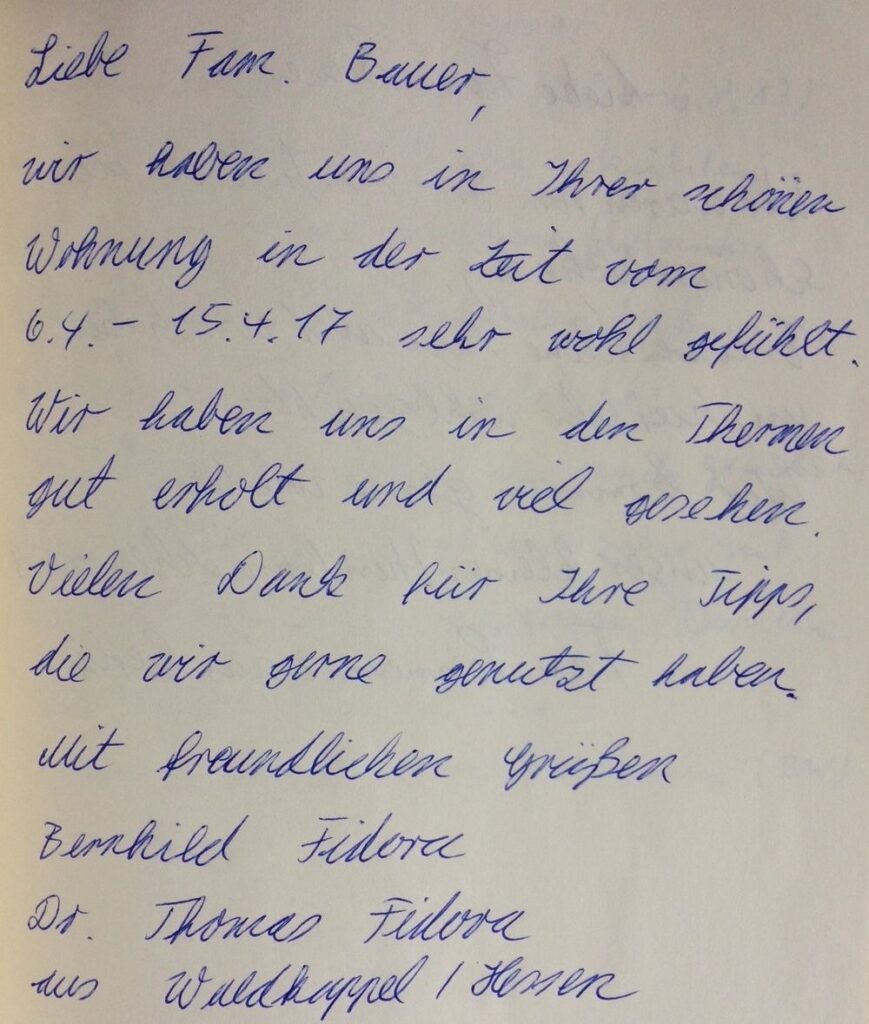 Liebe Fam. Bauer,
wir haben uns in Ihrer schönen
Wohnung in der Zeit vom
6.4.- 15.4.17 sehr wohl gefühlt.
Wir haben uns in den Thermen
gut erholt und viel gesehen.
Vielen Dank für Ihre Tipps,
die wir gerne genutzt haben.
Mit freundlichen Grüßen
Bernhild Fidora
Dr. Thomas Fidora
aus Waldkappel / Hessen